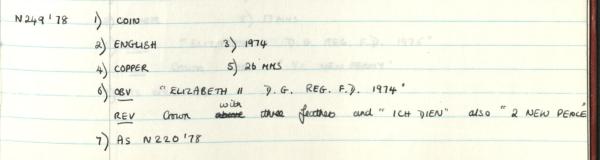 N249 '78 1) COIN
2) ENGLISH 3) 1974
4) COPPER 5) 26 MMS
6) OBV "ELIZABETH II D.G. REG. F.D. 1974"
REV Crown with three feathers and "ICH DIEN" also "2 NEW PENCE
7) AS N220 '78